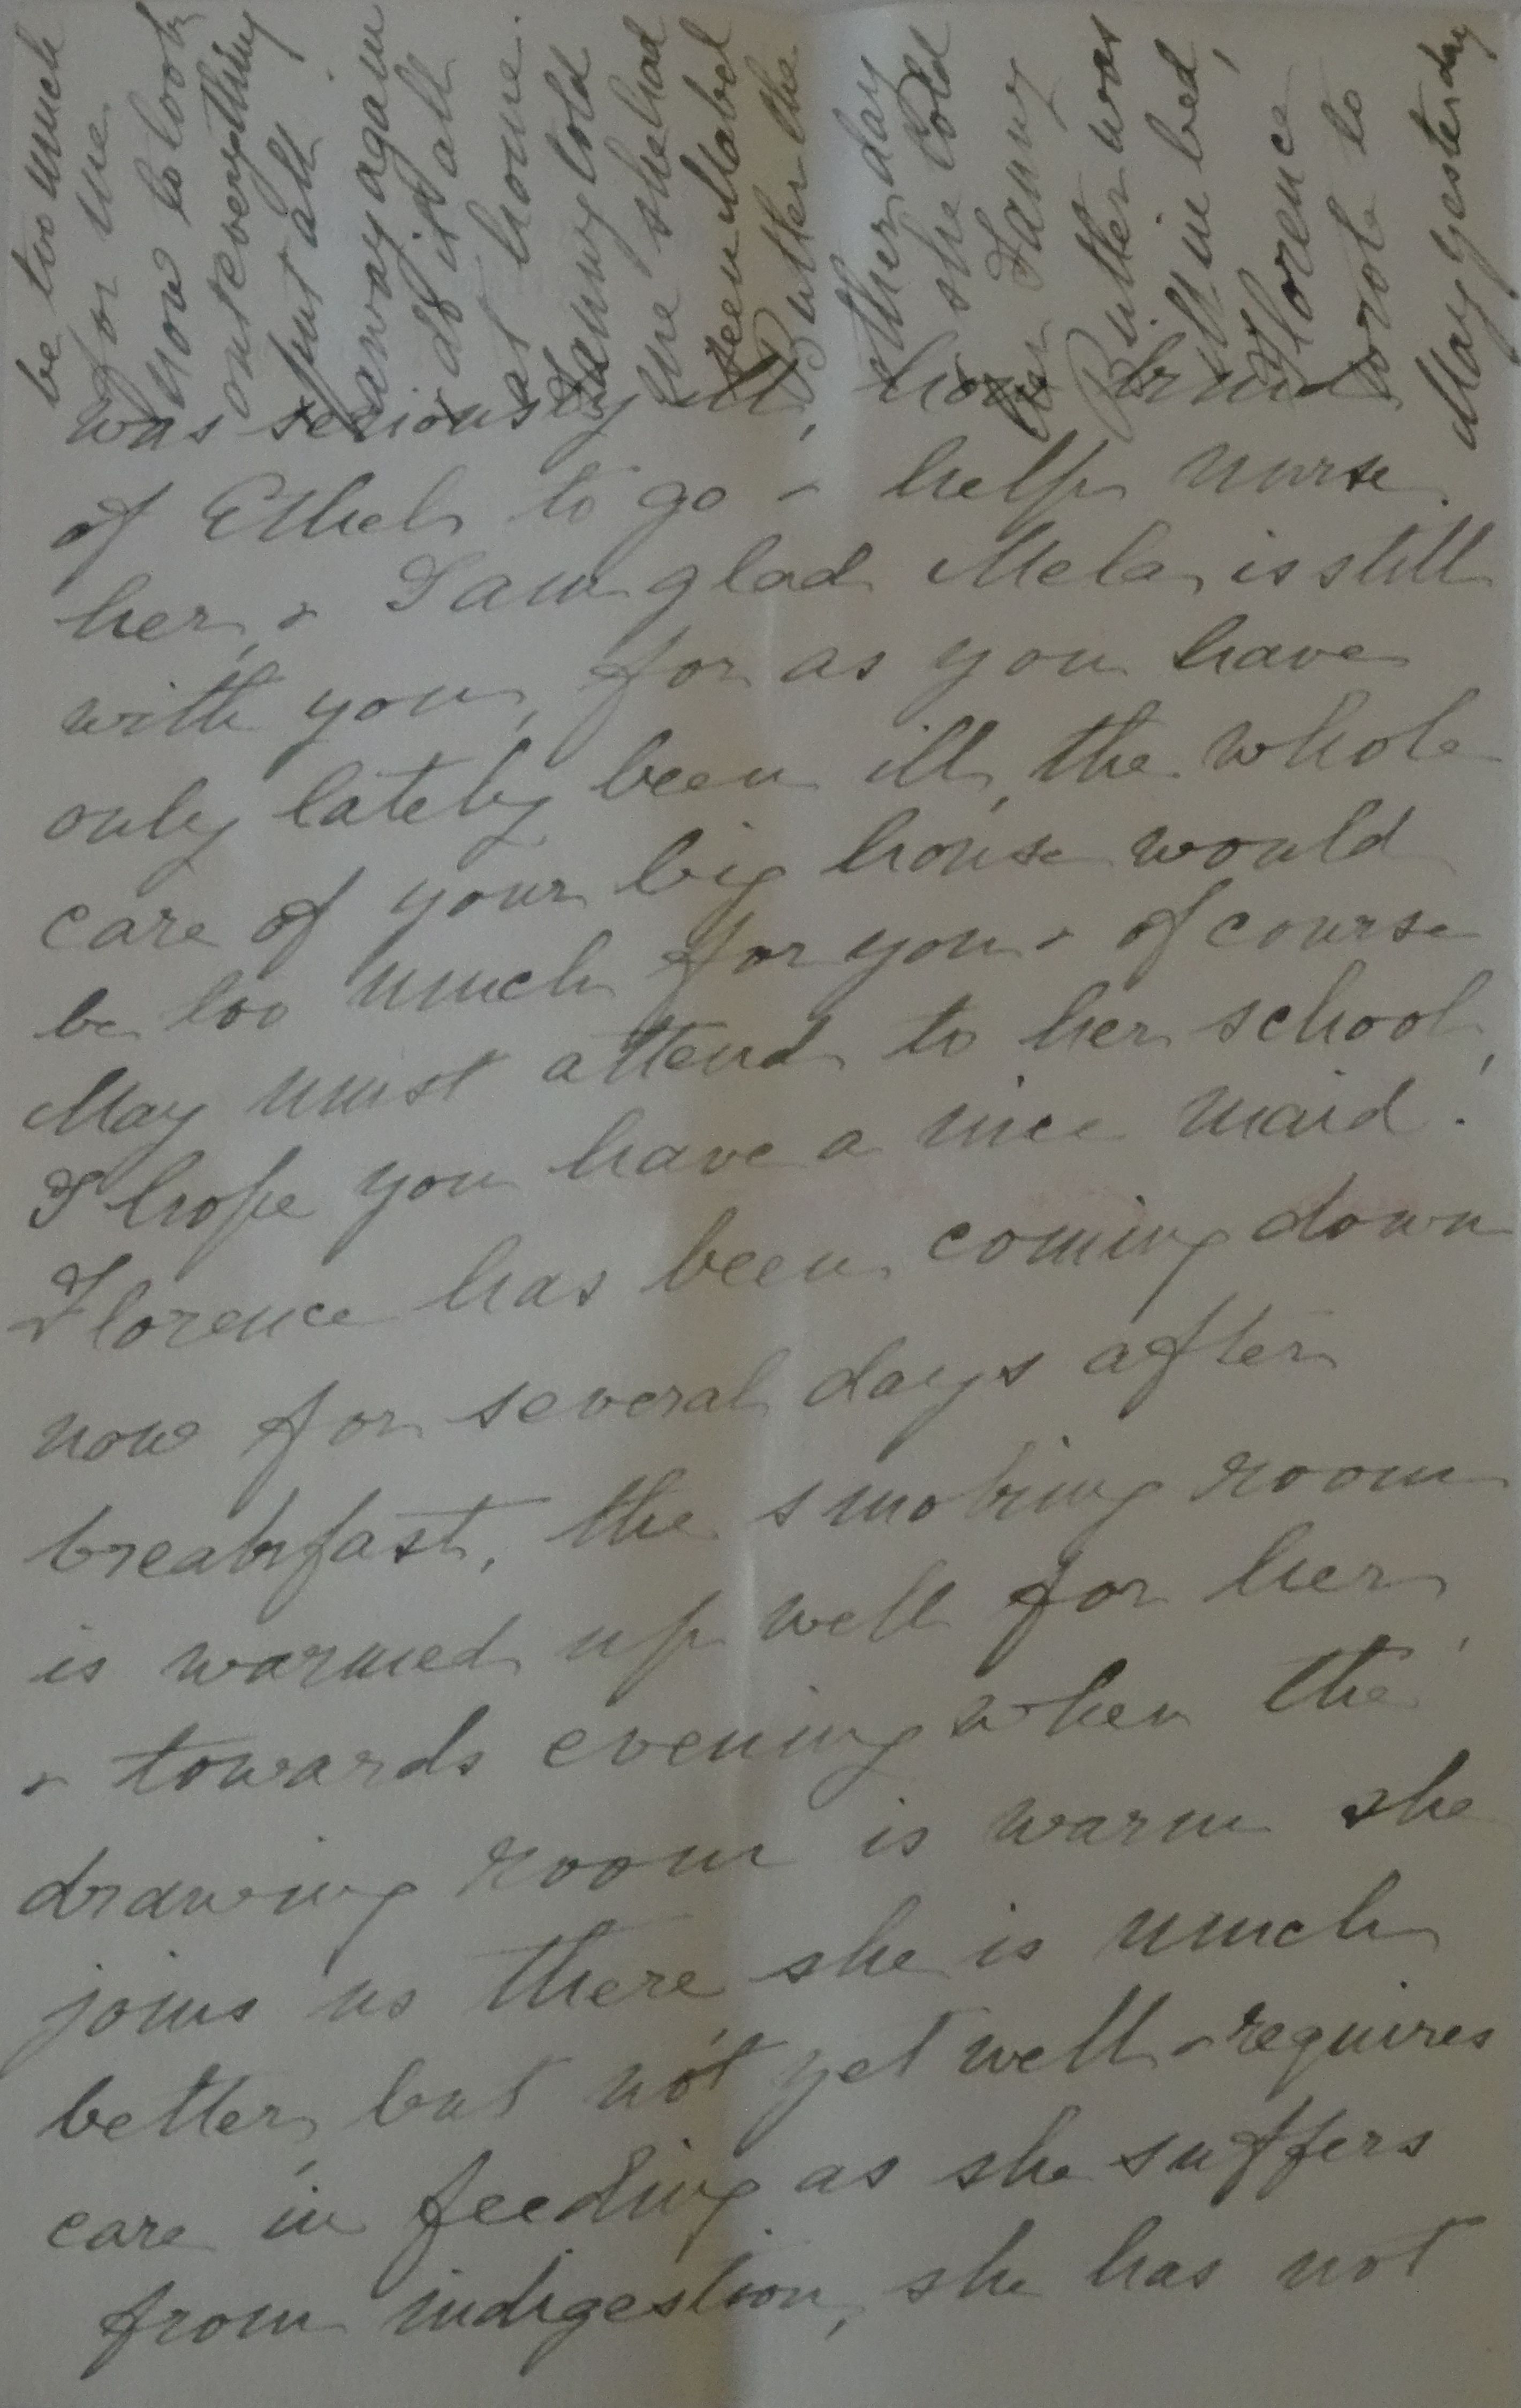 was seriously ill, how kind
of Ethel to go & help nurse
her, & I am glad Mela is still
with you, for as you have
only lately been ill, the whole
care of your big house would
be too much for you & of course
May must attend to her school,
I hope you have a nice maid.
Florence has been coming down
now for several days after
breakfast, the smoking room
is warmed up well for her,
& towards evening when the
drawing room is warm she
joins us there, she is much
better, but not yet well & requires
care in feeding as she suffers
from indigestion, she has not
be too much
for me
now to look
out everything
& put all
away again
do it all
at home.
Fanny told
me she had
seen Mabel
Butler the
other day
she told
her Fanny
Butler was
ill in bed,
Florence
wrote to
May yesterday